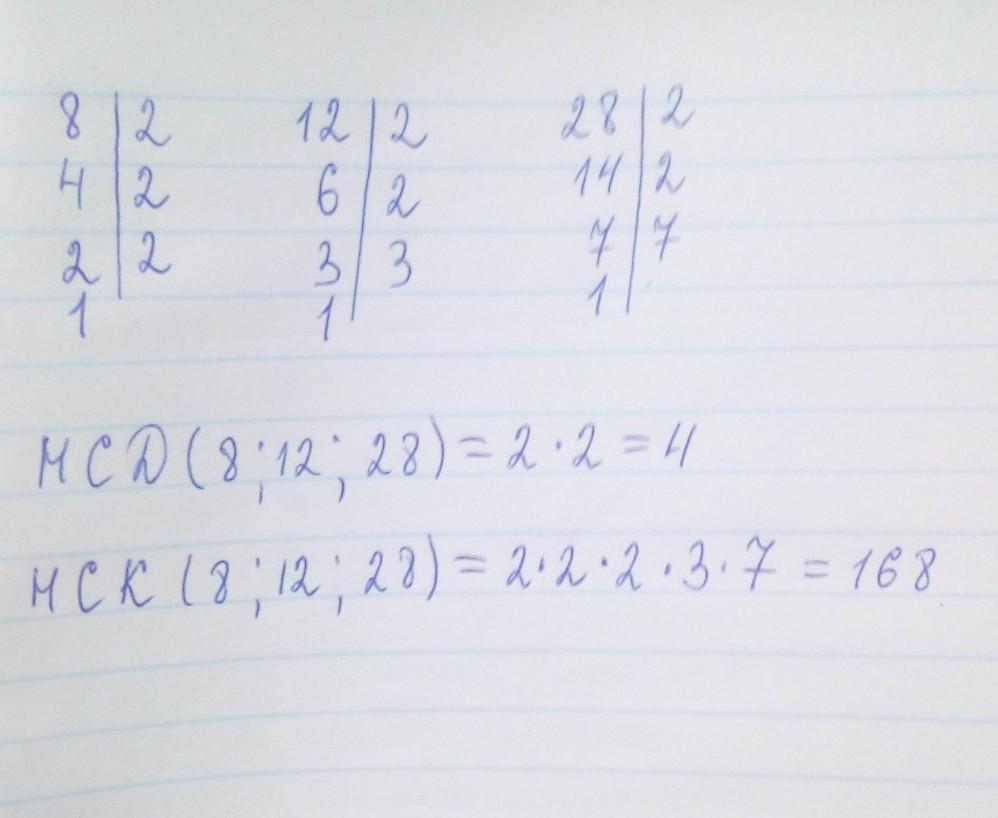 8 | 2 12 | 2 28 | 2
4 | 2 6 | 2 14 | 2
2 | 2 3 | 3 7 | 7
1 1 | 1 |
НСД (8; 12; 28) = 2 · 2 = 4
НСК (8; 12; 28) = 2 · 2 · 2 · 3 · 7 = 168